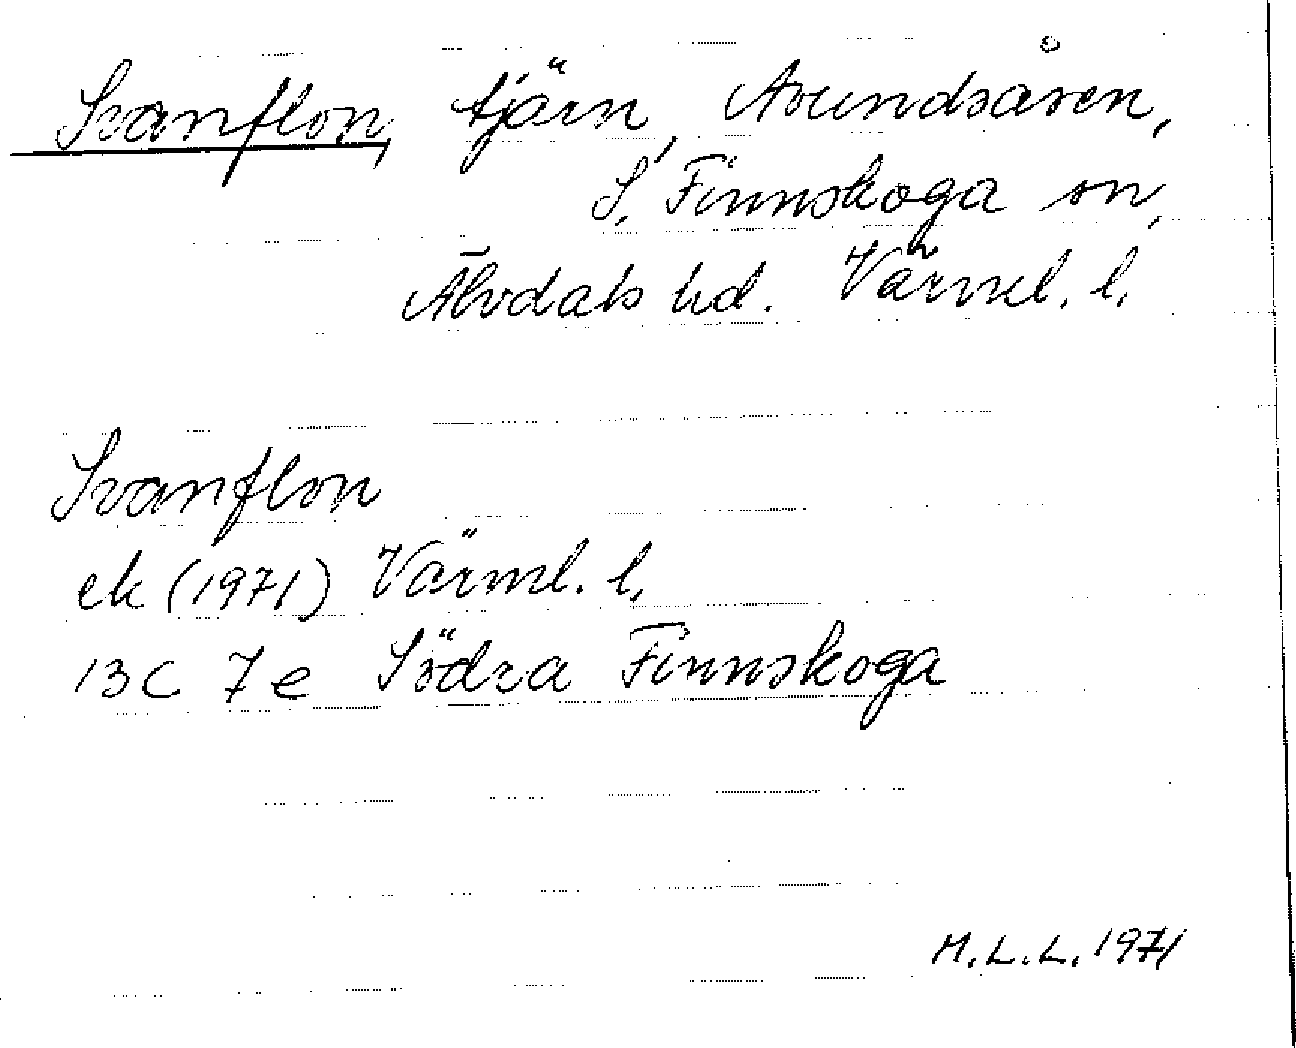 Svanflon, tjärn, Avundsåsen,
S. Finnskoga sn,
Älvdals hd. Värml. l.
Svanflon
ek (1971) Värml. l.
13C 7e Södra Finnskoga
M.L.L. 1971